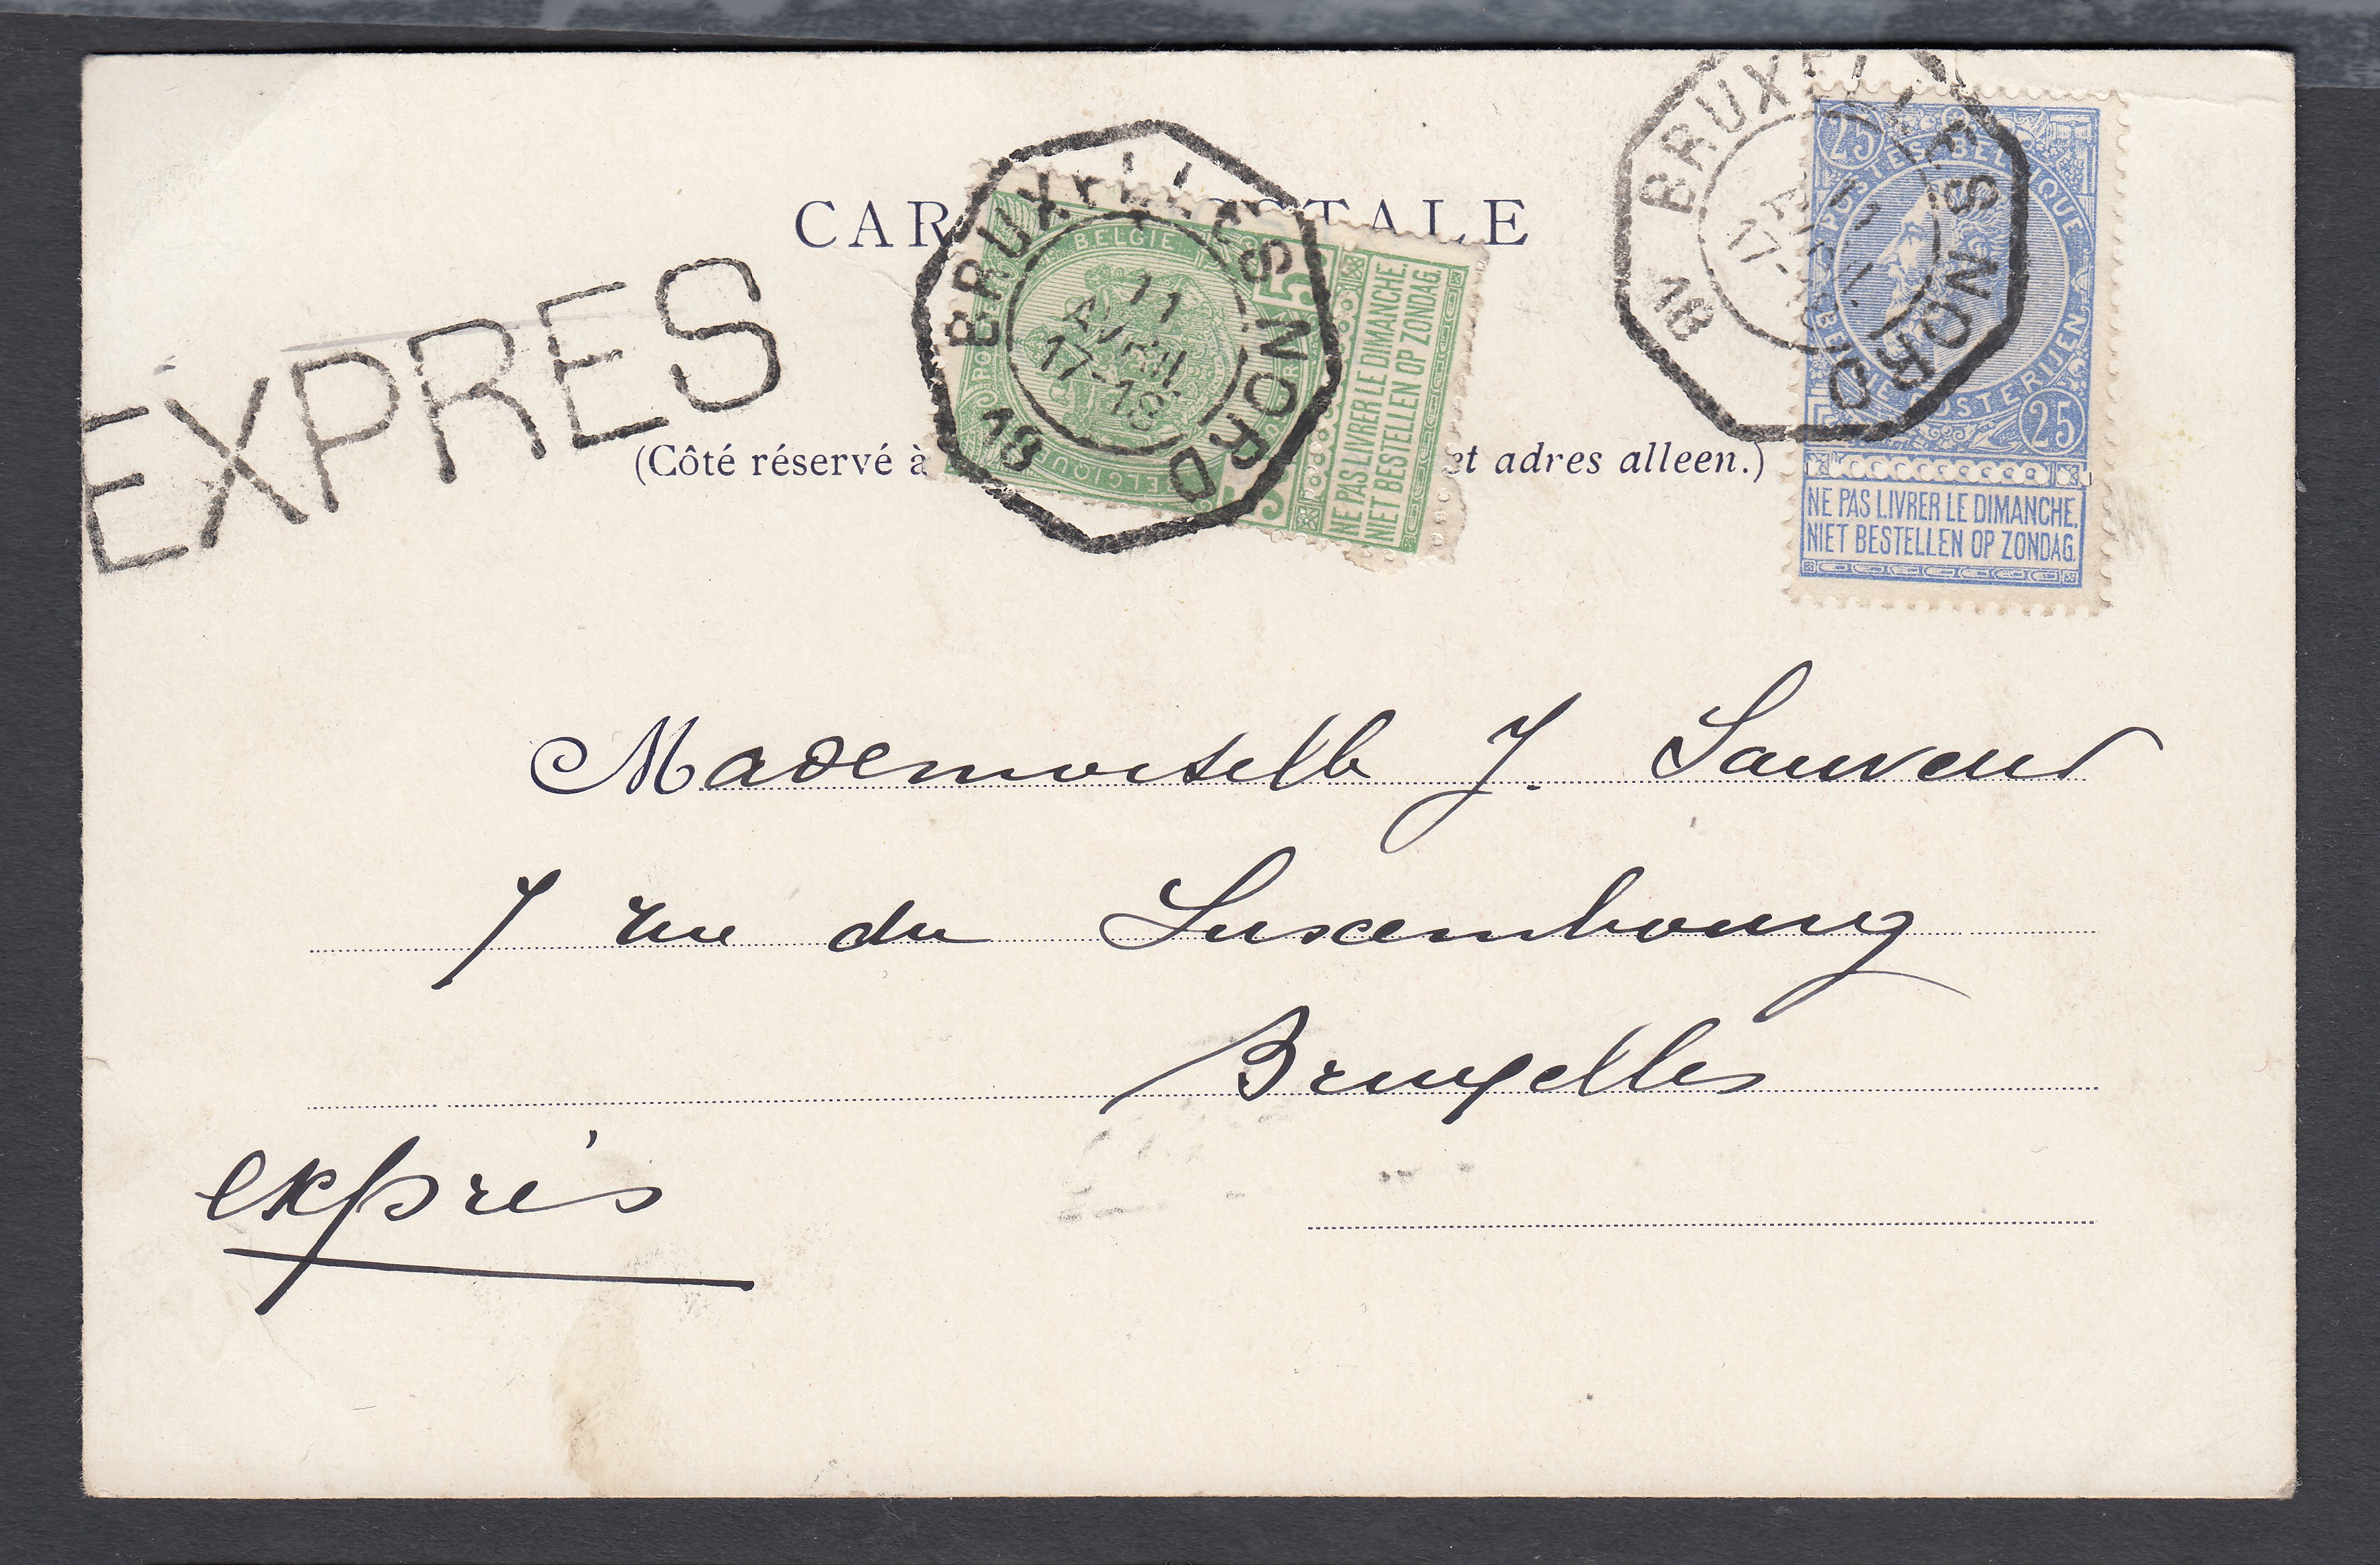 CAR STALE
(Côté réservé à et adres alleen.)
EXPRES
BRUXELLES NORD
11
AVRIL
17-18
18
BELGIE
BELGIQUE
5
5
NE PAS LIVRER LE DIMANCHE.
NIET BESTELLEN OP ZONDAG.
BRUXELLES NORD
11
AVRIL
17-18
18
25
POSTES BELGIQUE
BELGIE POSTERIJEN
25
NE PAS LIVRER LE DIMANCHE.
NIET BESTELLEN OP ZONDAG.
Mademoiselle J. Sauveur
7 rue du Luxembourg
Bruxelles
exprès